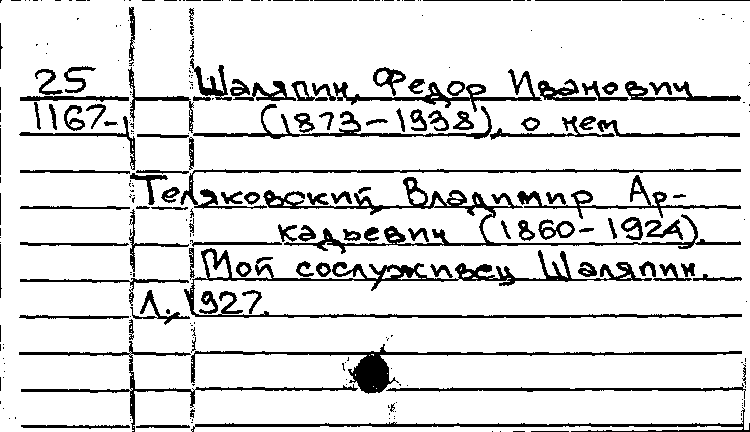 25 Шаляпин, Федор Иванович
1167-1 (1873-1938), о нем
Теляковский, Владимир Ар-
кадьевич (1860-1924).
Мой сослуживец Шаляпин.
Л., 1927.